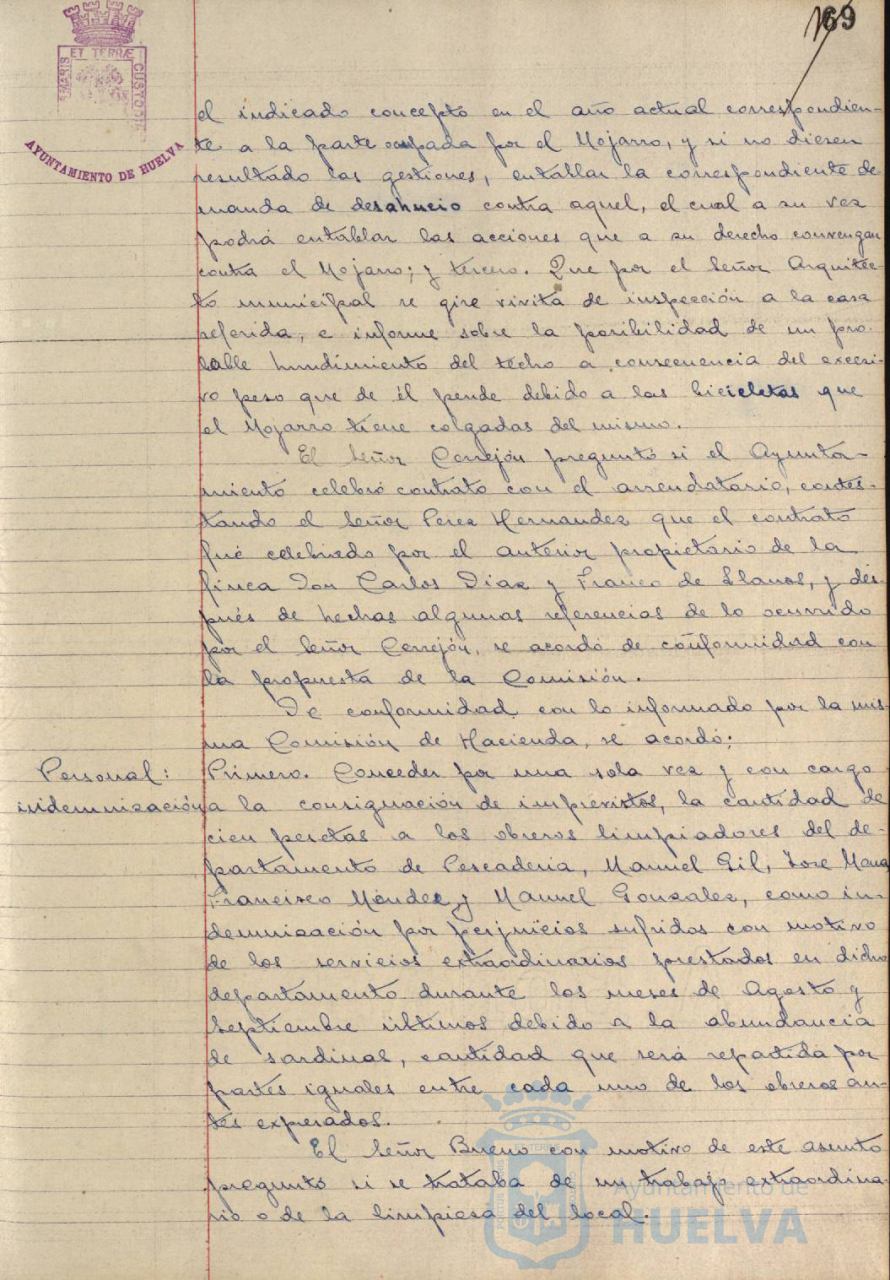 169
ET TERRÆ
MARIS
CUSTODIA
AYUNTAMIENTO DE HUELVA
el indicado concepto en el año actual correspondien-
te a la parte ocupada por el Mojarro, y si no diesen
resultado las gestiones, entablar la correspondiente de
manda de desahucio contra aquel, el cual a su vez
podrá entablar las acciones que a su derecho convengan
contra el Mojarro; y tercero. Que por el Señor Arquitec-
to municipal se gire visita de inspección a la casa
referida, e informe sobre la posibilidad de un pro-
bable hundimiento del techo a consecuencia del excesi-
vo peso que de él pende debido a las bicicletas que
el Mojarro tiene colgadas del mismo.
El Señor Cerrejón preguntó si el Ayunta-
miento celebró contrato con el arrendatario, contes-
tando el Señor Perez Hernandez que el contrato
fué celebrado por el anterior propietario de la
finca Don Carlos Diaz y Franco de Llanos, y des-
pués de hechas algunas referencias de lo ocurrido
por el Señor Cerrejón, se acordó de conformidad con
la propuesta de la Comisión.
De conformidad con lo informado por la mis-
ma Comisión de Hacienda, se acordó;
Personal: Primero. Conceder por una sola vez y con cargo
indemnización a la consignación de imprevistos, la cantidad de
cien pesetas a los obreros limpiadores del de-
partamento de Pescaderia, Manuel Gil, Jose Mora,
Francisco Méndez y Manuel Gonzalez, como in-
demnización por perjuicios sufridos con motivo
de los servicios extraordinarios prestados en dicho
departamento durante los meses de Agosto y
Septiembre últimos debido a la abundancia
de sardinas, cantidad que será repartida por
partes iguales entre cada uno de los obreros an-
tes expresados.
El Señor Bueno con motivo de este asunto
preguntó si se trataba de un trabajo extraordina-
rio o de la limpieza del local.
Ayuntamiento de
HUELVA